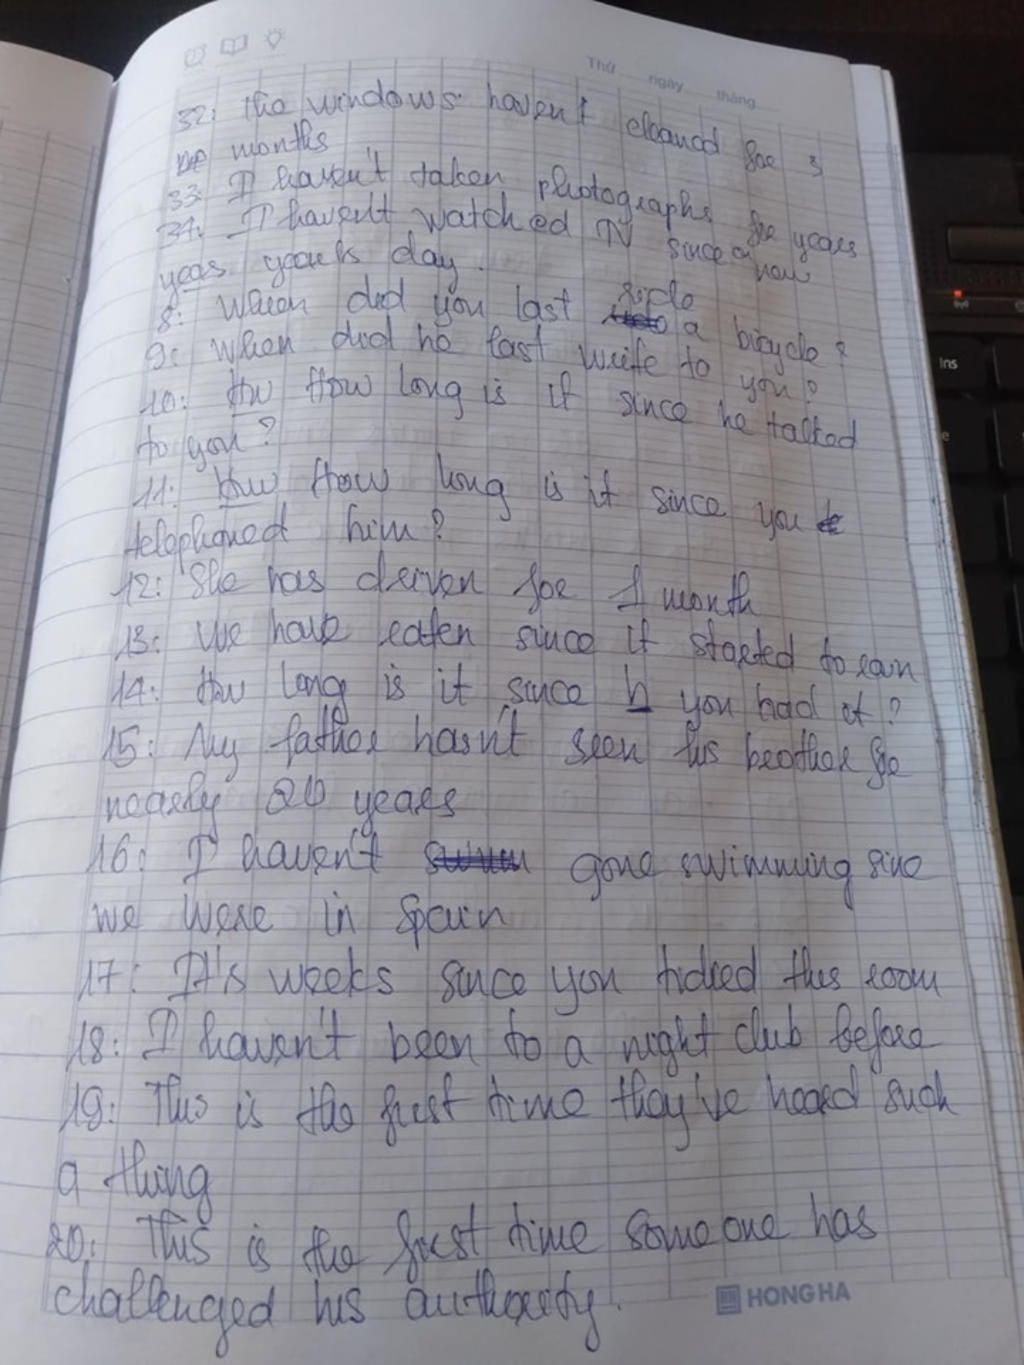 Thứ ngày tháng
32: the windows haven't cleaned for 3
months
33: I haven't taken photographs for years
34: I haven't watched TV since new
year's day.
8: When did you last ride a bicycle?
9: When did he last write to you?
10: How long is it since he talked
to you?
11: How long is it since you
telephoned him?
12: She has driven for 1 month
13: We have eaten since it started to rain
14: How long is it since you had it?
15: My father hasn't seen his brother for
nearly 20 years
16: I haven't gone swimming sine
we were in Spain
17: It's weeks since you tidied this room
18: I haven't been to a night club before
19: This is the first time they've heard such
a thing
20: This is the first time someone has
challenged his authority.
HONG HA
Ins